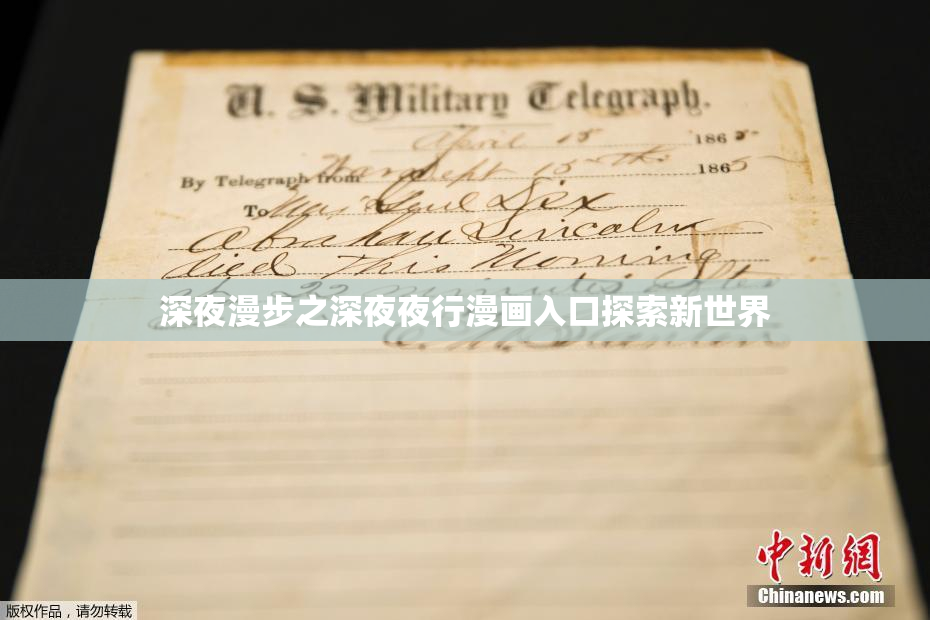 U. S. Military Telegraph.
April 15 1865
By Telegraph from War Dept 15th 1865
To Maj Genl Dix
Abraham Lincoln
died This Morning
at 22 minutes after
深夜漫步之深夜夜行漫画入口探索新世界
E. M. Stanton
中新网
Chinanews.com
版权作品，请勿转载